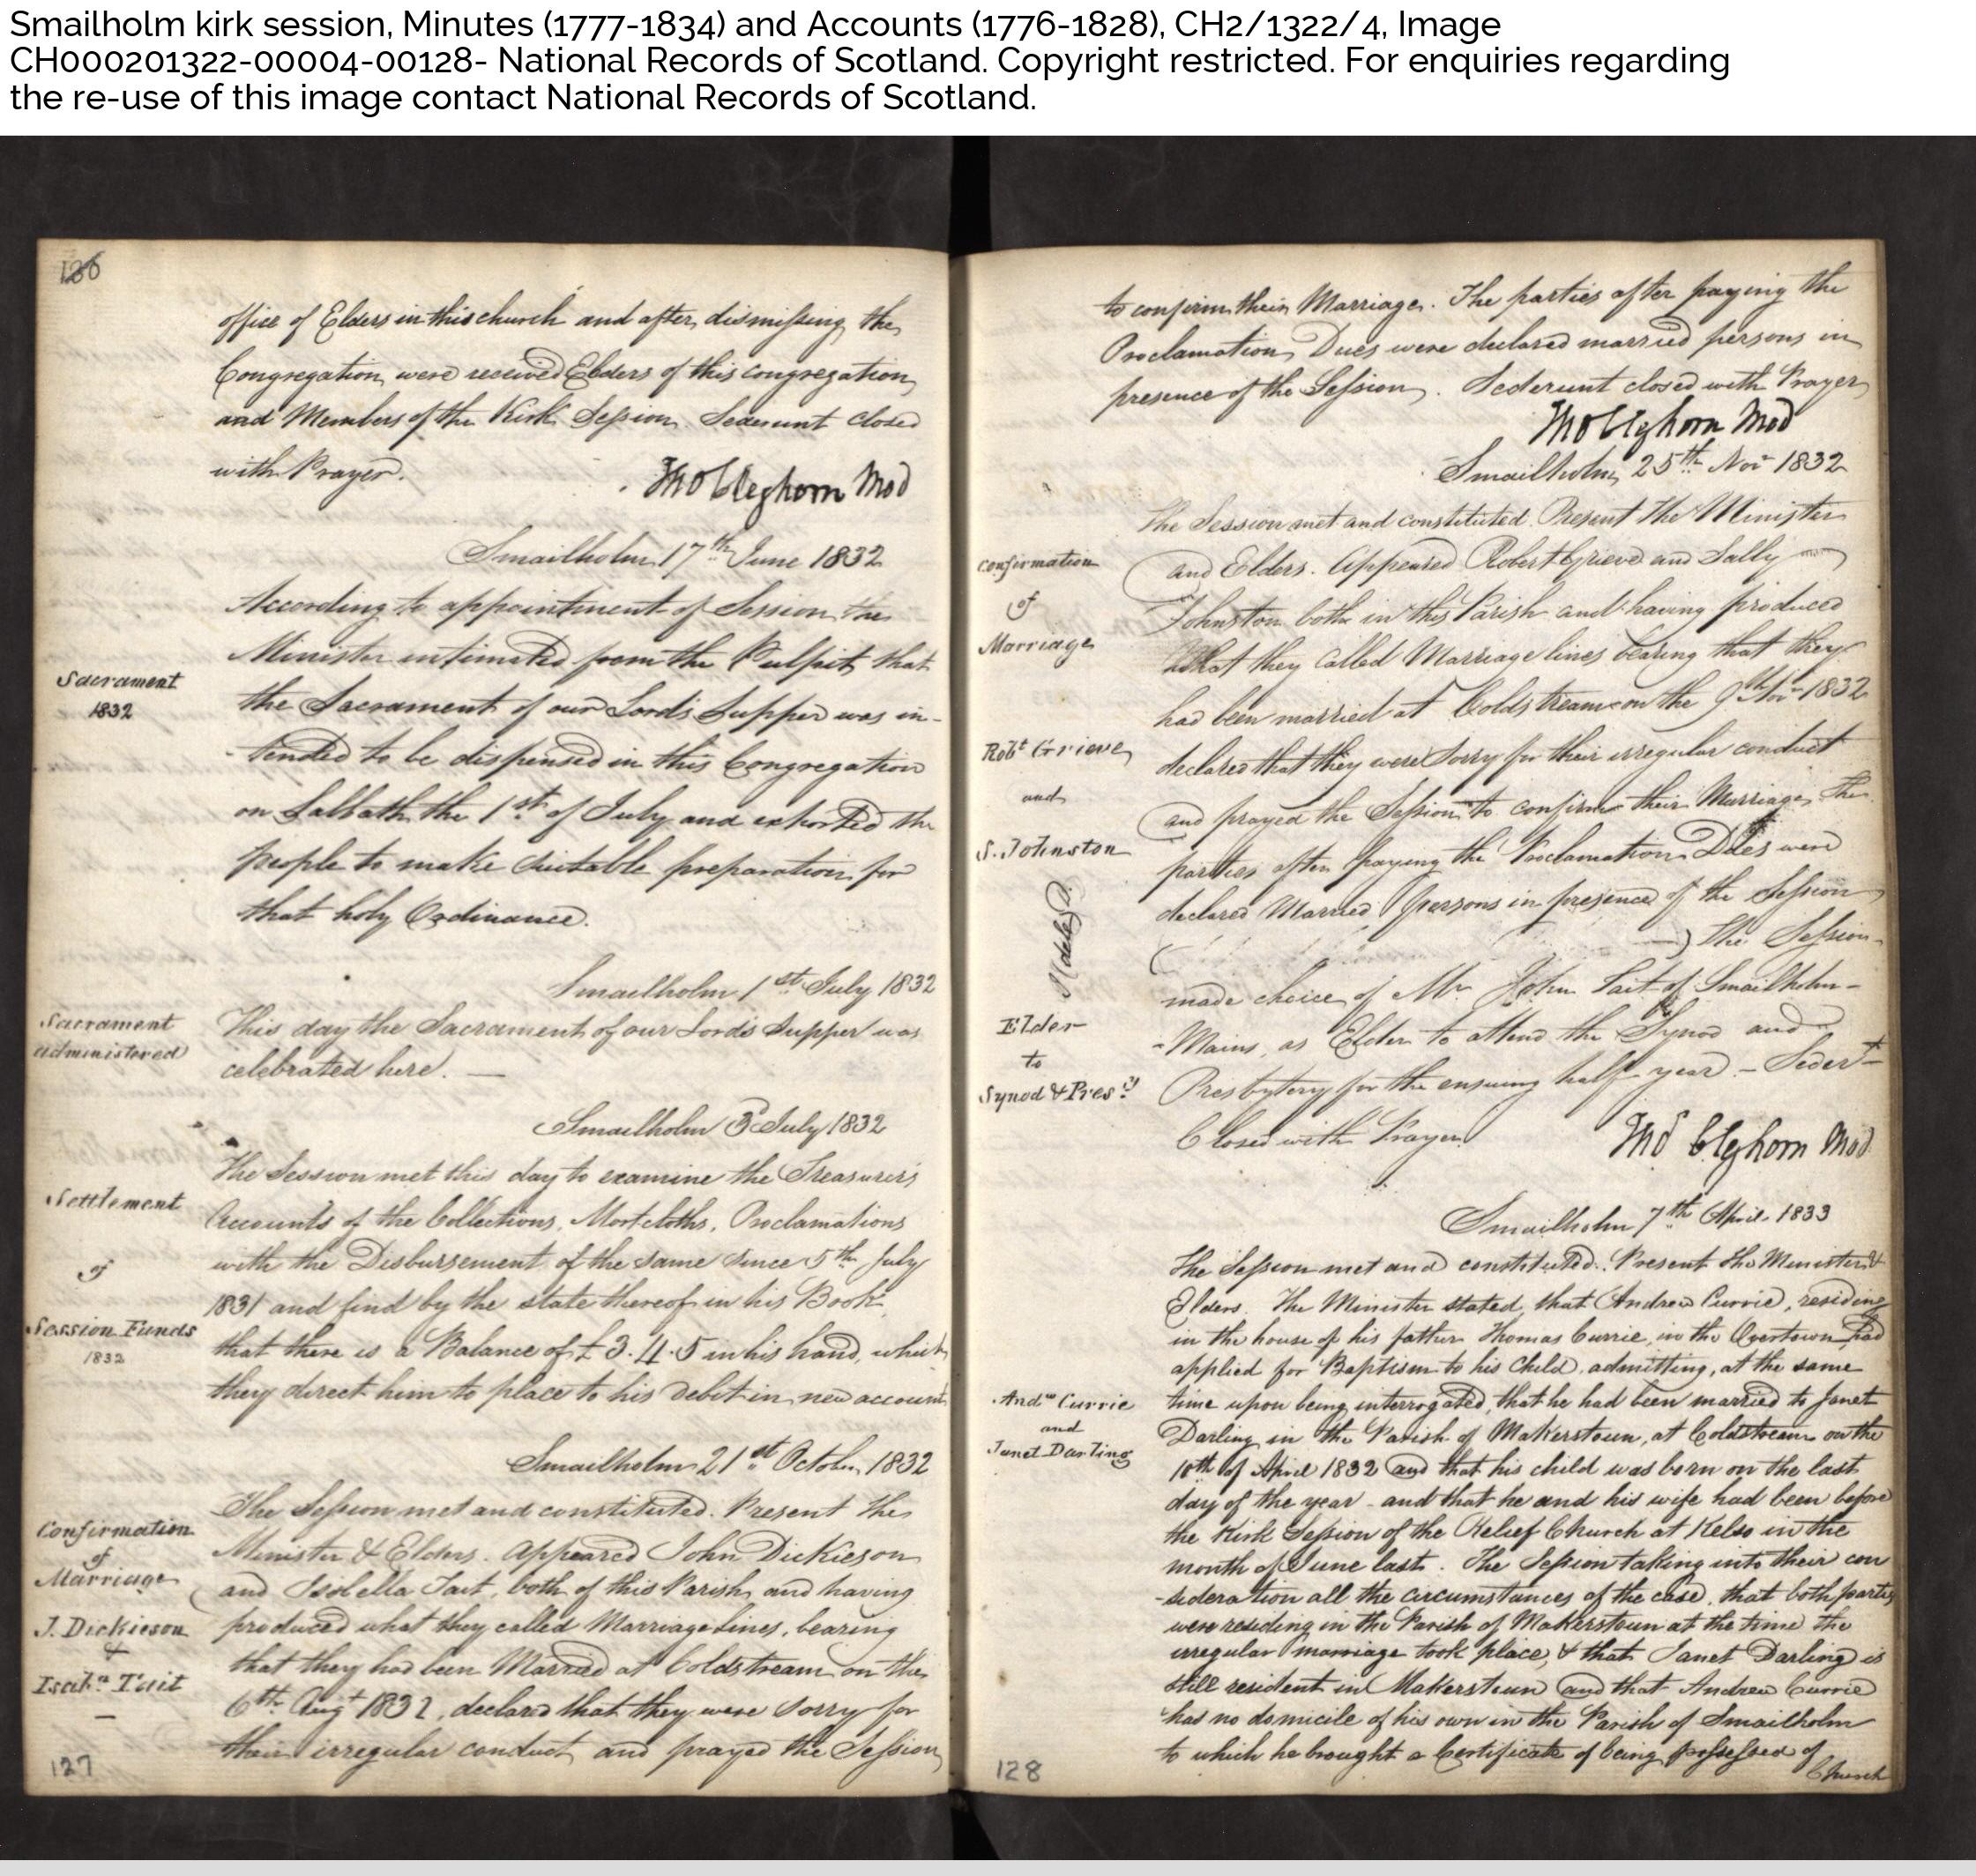 Smailholm kirk session, Minutes (1777-1834) and Accounts (1776-1828), CH2/1322/4, Image
CH000201322-00004-00128- National Records of Scotland. Copyright restricted. For enquiries regarding
the re-use of this image contact National Records of Scotland.
126
office of Elders in this church and after dismissing the
Congregation were received Elders of this congregation
and Members of the Kirk Session. Sederunt closed
with Prayer.
Tho Cleghorn Mod
Smailholm 17th June 1832
According to appointment of Session the
Minister intimated from the Pulpit that
Sacrament
1832
the Sacrament of our Lord's Supper was in-
-tended to be dispensed in this Congregation
on Sabbath the 1st of July and exhorted the
people to make suitable preparation for
that holy Ordinance.
Smailholm 1st July 1832
Sacrament
administered
This day the Sacrament of our Lord's Supper was
celebrated here. —
Smailholm 3d July 1832
Settlement
of
Session Funds
1832
The Session met this day to examine the Treasurer's
Accounts of the Collections, Mortcloths, Proclamations
with the Disbursement of the same since 5th July
1831 and find by the state thereof in his Book
that there is a Balance of £3.4.5 in his hand, which
they direct him to place to his Debit in new account
Smailholm 21st October 1832
Confirmation
of
Marriage
J. Dickieson
&
Isabla Tait
—
The Session met and constituted. Present the
Minister & Elders. Appeared John Dickieson
and Isobella Tait, both of this Parish, and having
produced what they called Marriage Lines, bearing
that they had been Married at Coldstream on the
6th Augt 1832, declared that they were sorry for
their irregular conduct and prayed the Session
127
to confirm their Marriage. The parties after paying the
Proclamation Dues were declared married persons in
presence of the Session. Sederunt closed with Prayer
Tho Cleghorn Mod
Smailholm 25th Nov 1832
The Session met and constituted. Present the Minister
Confirmation
of
Marriage
Robt Grieve
and
S. Johnston
and Elders. Appeared Robert Grieve and Sally
Johnston both in this Parish and having produced
what they called Marriage lines bearing that they
had been married at Coldstream on the 9th Nov 1832
declared that they were sorry for their irregular conduct
and prayed the Session to confirm their Marriage. The
parties after paying the Proclamation Dues were
declared Married persons in presence of the Session
Elder
to
Synod & Presy
The Session
made choice of Mr John Tait of Smailholm-
-Mains, as Elder to attend the Synod and
Presbytery for the ensuing half year - Sedert
Closed with Prayer
Tho Cleghorn Mod
Smailholm 7th April 1833
The Session met and constituted. Present the Minister &
Elders. The Minister stated, that Andrew Currie, residing
in the house of his father Thomas Currie, in the Overtown, had
applied for Baptism to his Child, admitting, at the same
Andw Currie
and
Janet Darling
time upon being interrogated, that he had been married to Janet
Darling in the Parish of Makerstoun, at Coldstream on the
10th of April 1832 and that his child was born on the last
day of the year - and that he and his wife had been before
the Kirk Session of the Relief Church at Kelso in the
month of June last. The Session taking into their con
-sideration all the circumstances of the case, that both parties
were residing in the Parish of Makerstoun at the time the
irregular marriage took place, & that Janet Darling is
still resident in Makerstoun and that Andrew Currie
has no domicile of his own in the Parish of Smailholm
to which he brought a Certificate of being possessed of
Church
128